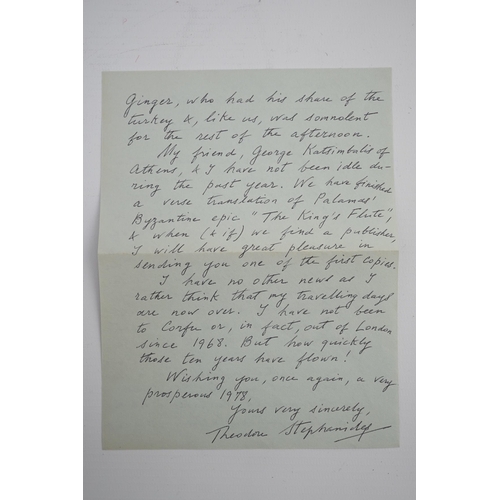 Ginger, who had his share of the
turkey &, like us, was somnolent
for the rest of the afternoon.
My friend, George Katsimbalis of
Athens, & I have not been idle du-
ring the past year. We have finished
a verse translation of Palamas'
Byzantine epic "The King's Flute",
& when (& if) we find a publisher,
I will have great pleasure in
sending you one of the first copies.
I have no other news as I
rather think that my travelling days
are now over. I have not been
to Corfu or, in fact, out of London
since 1968. But how quickly
those ten years have flown!
Wishing you, once again, a very
prosperous 1978,
Yours very sincerely,
Theodore Stephanides